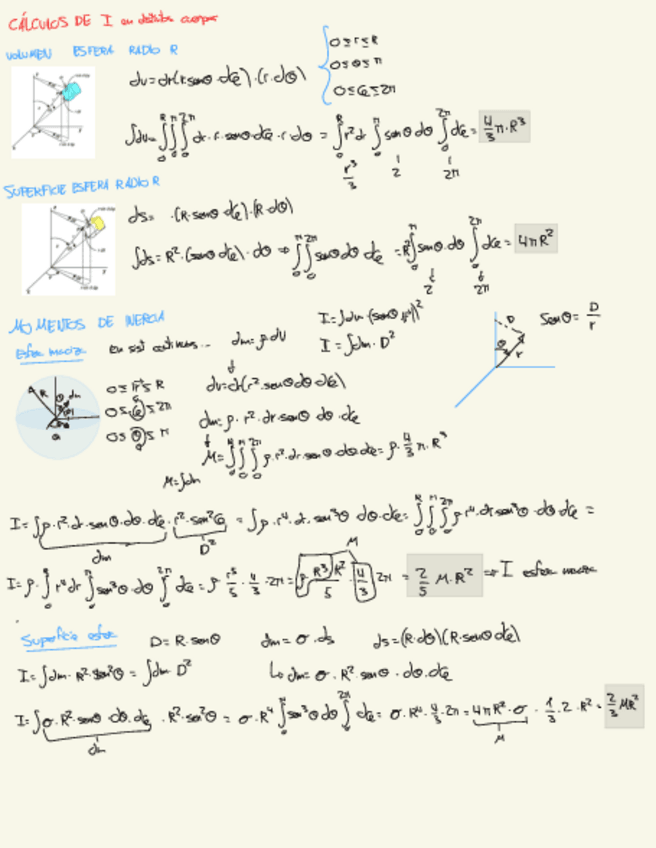 CÁLCULOS DE I en distintos cuerpos
VOLUMEN ESFERA RADIO R
dv = dr(r·senθ·dφ)·(r·dθ)
0 ≤ r ≤ R
0 ≤ θ ≤ π
0 ≤ φ ≤ 2π
∫dv = ∫₀ᴿ∫₀^π∫₀^2π dr·r·senθ·dφ·r·dθ = ∫₀ᴿ r²dr ∫₀^π senθ dθ ∫₀^2π dφ = 4/3 π·R³
r³/3 2 2π
SUPERFICIE ESFERA RADIO R
ds = ·(R·senθ·dφ)·(R·dθ)
∫ds = R²·(senθ dφ)·dθ ⇒ ∫₀^π∫₀^2π senθ dθ dφ = R²∫₀^π senθ·dθ ∫₀^2π dφ = 4πR²
2 2π
MOMENTOS DE INERCIA
I = ∫dm·(senθ·r)²
Esfera maciza en sist continuos... dm = ρ·dV I = ∫dm·D²
D θ r
Senθ = D/r
R θ dm
0 ≤ r ≤ R
0 ≤ φ ≤ 2π
0 ≤ θ ≤ π
dv = dr(r²·senθ dθ dφ)
dm = ρ·r²·dr·senθ·dθ·dφ
M = ∫₀ᴿ∫₀^π∫₀^2π ρ·r²·dr·senθ dθ·dφ = ρ·4/3 π·R³
M = ∫dm
I = ∫ρ·r²·dr·senθ·dθ·dφ·r²·sen²θ = ∫ρ·r⁴·dr·sen³θ dθ·dφ = ∫₀ᴿ∫₀^π∫₀^2π ρ·r⁴·dr·sen³θ·dθ·dφ =
dm D²
M
I = ρ·∫₀ᴿ r⁴dr ∫₀^π sen³θ dθ ∫₀^2π dφ = ρ·r⁵/5·4/3·2π = ρ R³R²/5 4/3 2π = 2/5 M·R² ⇒ I esfera maciza
Superficie esfera D = R·senθ dm = σ·ds ds = (R·dθ)(R·senθ dφ)
I = ∫dm·R²·sen²θ = ∫dm·D² ↳ dm = σ·R²·senθ·dθ·dφ
I = ∫σ·R²·senθ·dθ·dφ·R²·sen²θ = σ·R⁴ ∫₀^π sen³θ dθ ∫₀^2π dφ = σ·R⁴·4/3·2π = 4πR²·σ·1/3·2·R² = 2/3 MR²
dm M